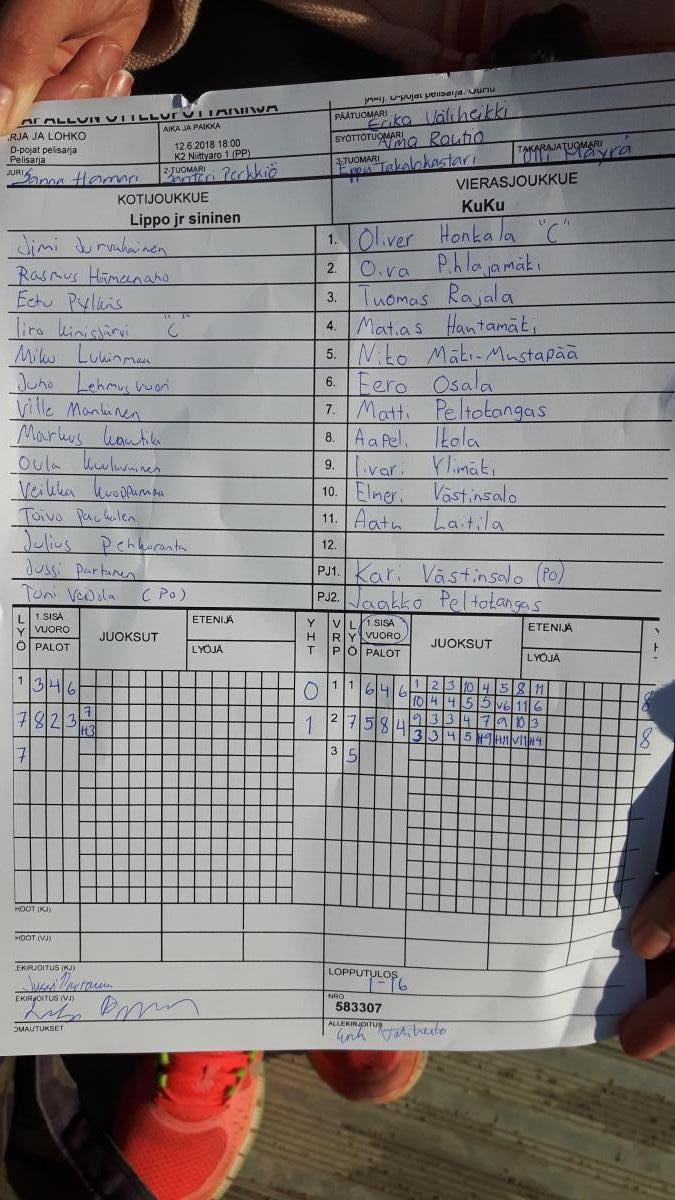 PÄÄTUOMARI Erika Väliheikki
RJA JA LOHKO
D-pojat pelisarja
Pelisarja
AIKA JA PAIKKA
12.6.2018 18:00
K2 Niittyaro 1 (PP)
SYÖTTÖTUOMARI Alma Routio
JURI Sanna Hamari
2-TUOMARI Santeri Perkkiö
3-TUOMARI Eppu Takalokastari
TAKARAJATUOMARI Olli Mäyrä
KOTIJOUKKUE
Lippo jr sininen
VIERASJOUKKUE
KuKu
Jimi Jurvahainen 1. Oliver Honkala "C"
Rasmus Hämeenaho 2. Oiva Pihlajamäki
Eetu Pylkäs 3. Tuomas Rajala
Iiro Kinisjärvi "C" 4. Matias Hantamäki
Miku Lukinmaa 5. Niko Mäki-Mustapää
Juho Lehmusvuori 6. Eero Osala
Ville Manninen 7. Matti Peltokangas
Markus Kautila 8. Aapeli Ikola
Oula Kuuluvainen 9. Iivari Ylimäki
Veikka Kuoppamaa 10. Elmeri Västinsalo
Toivo Pachalen 11. Aatu Laitila
Julius Pehkoranta 12.
Jussi Partanen PJ1. Kari Västinsalo (PO)
Toni Veijola (PO) PJ2. Jaakko Peltokangas
LYÖ 1.SISÄ VUORO PALOT JUOKSUT ETENIJÄ LYÖJÄ YHT VRP LYÖ 1.SISÄ VUORO PALOT JUOKSUT ETENIJÄ LYÖJÄ
1 3 4 6 0 1 1 6 4 6 1 2 3 10 4 5 8 11 8
10 4 4 5 5 V6 11 6
7 8 2 3 7 1 2 7 5 8 4 9 3 3 4 7 9 10 3 8
H3 3 3 4 5 H9 H11 V11 H4
7 3 5
HDOT (KJ)
HDOT (VJ)
EKIRJOITUS (KJ)
Jussi Partanen
LOPPUTULOS
1-16
EKIRJOITUS (VJ)
NRO
583307
OMAUTUKSET
ALLEKIRJOITUS